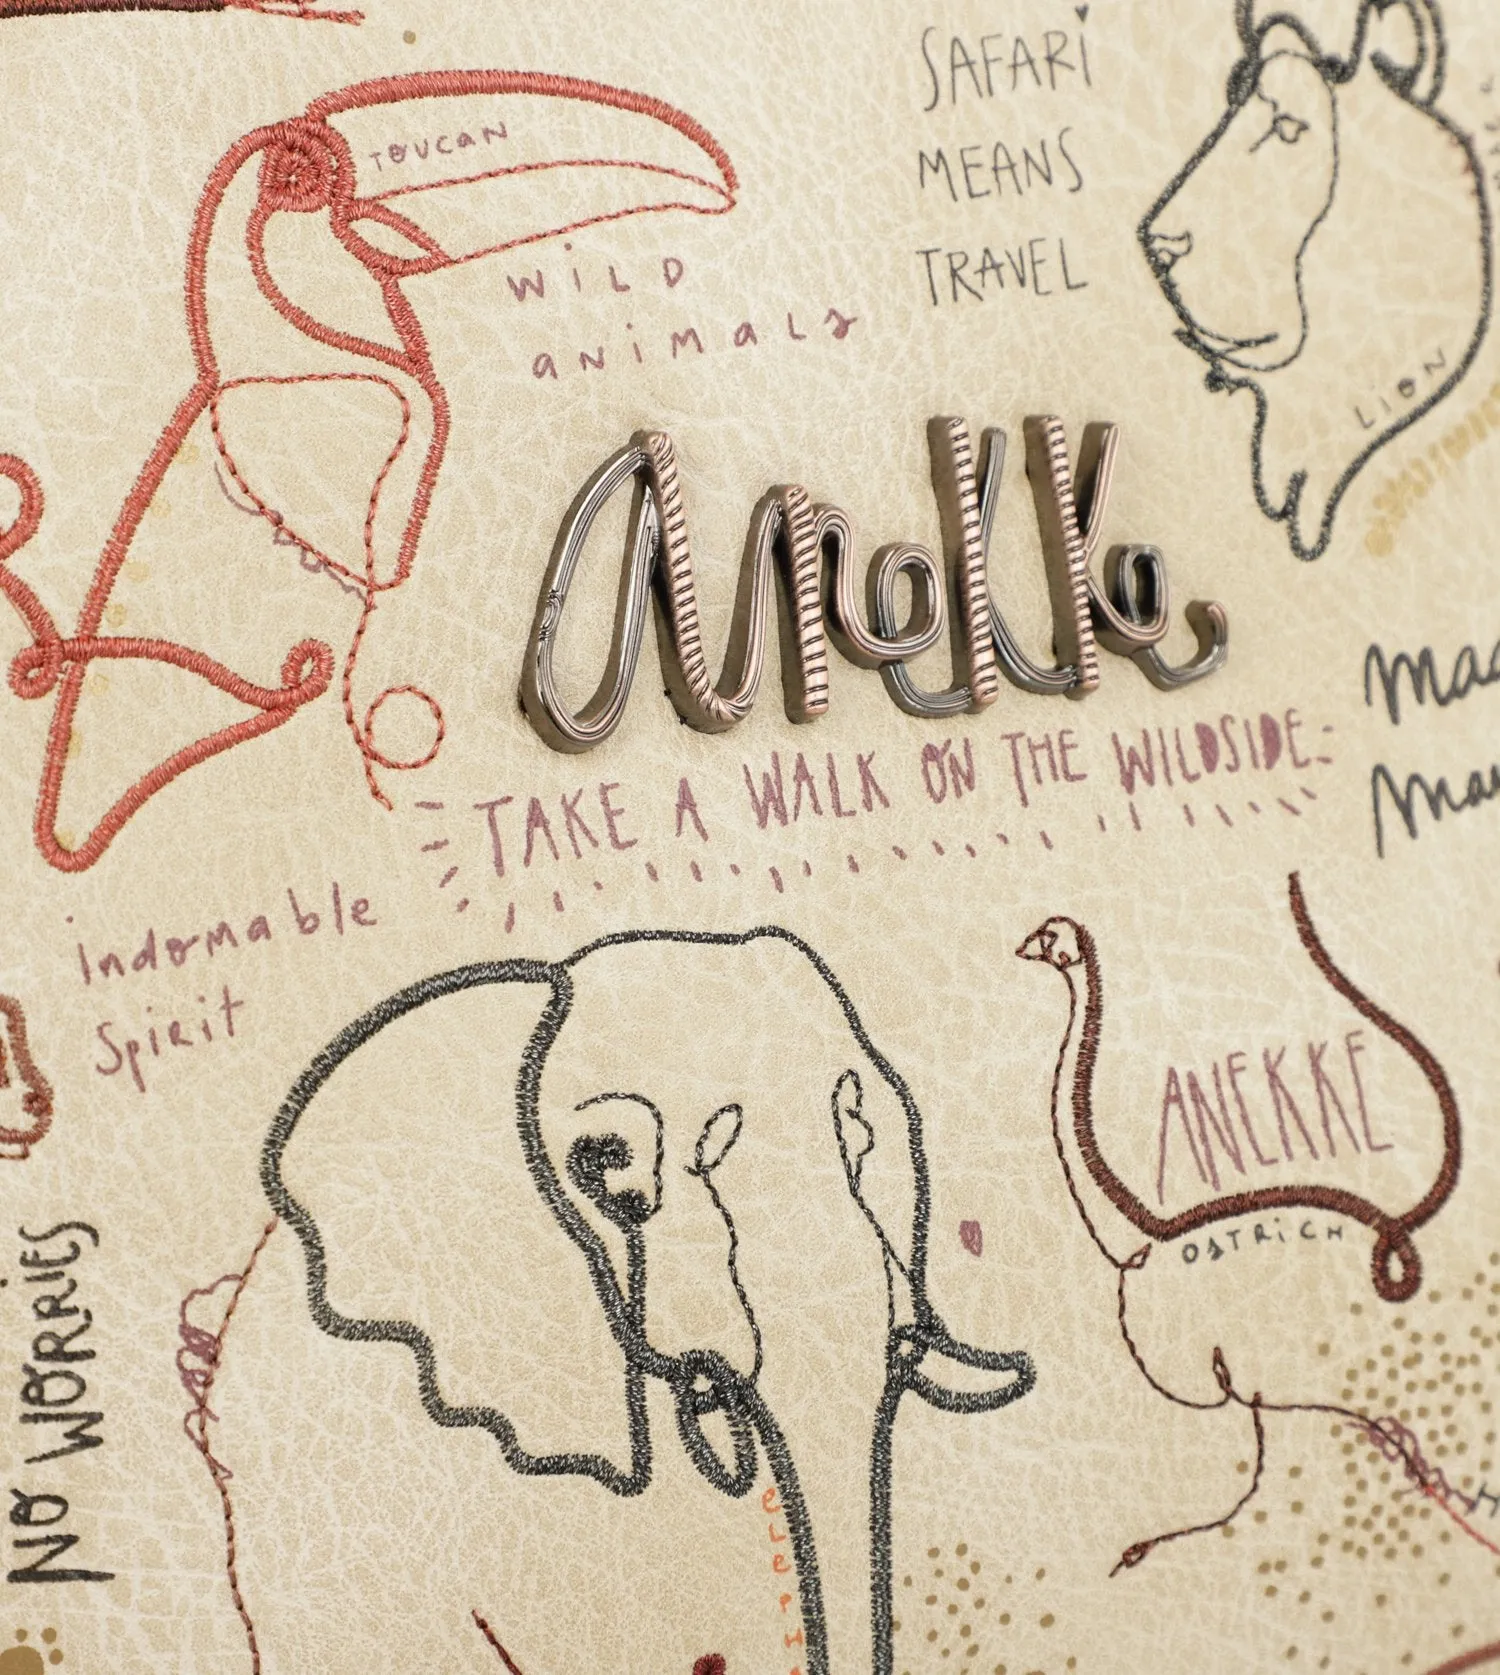 TOUCAN
WiLD
aNimaLs
SAFARi
MEANS
TRAVEL
LiON
anekke
TAKE A WALK ON THE WILDSIDE
indomable
Spirit
ANEKKE
OSTRiCH
NO WORRiES